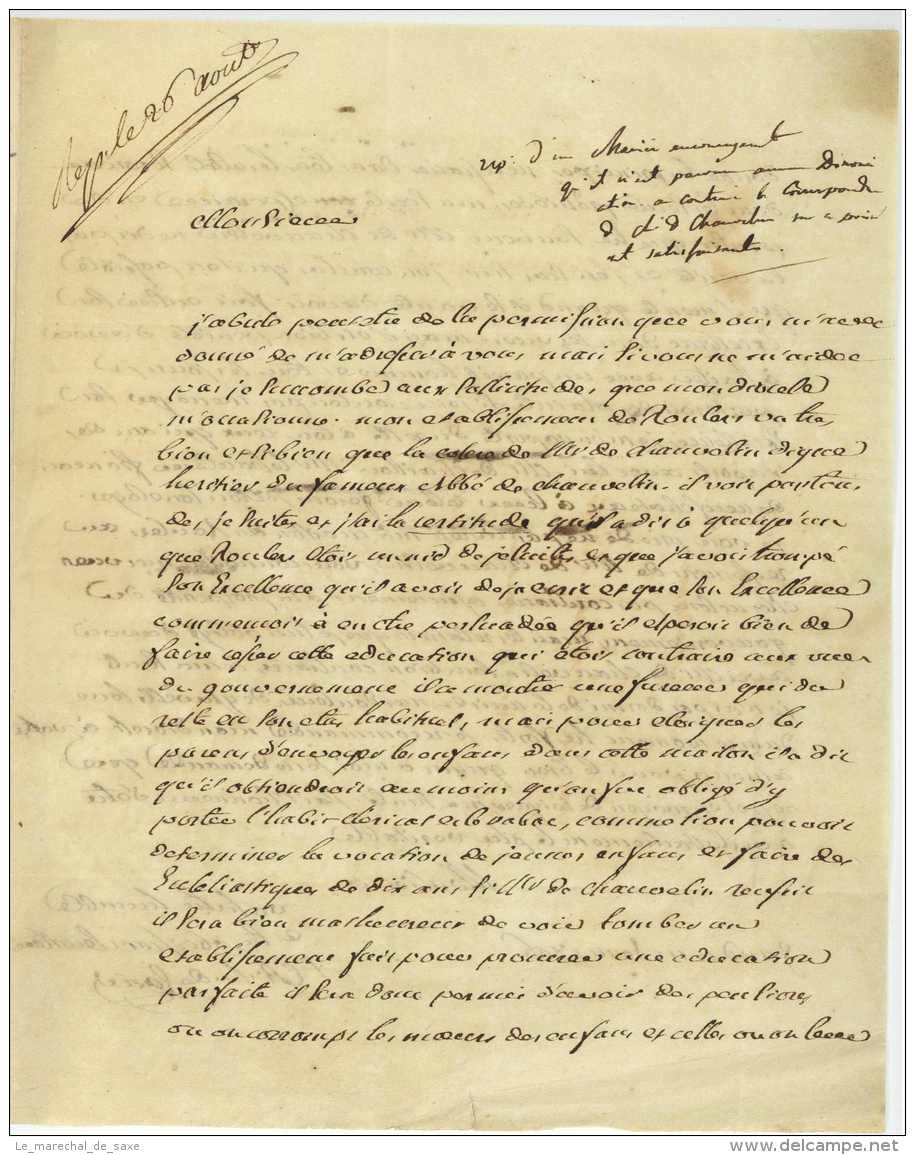 Rep. le 26 aout
rep. d'un
qu'il n'est parvenu aucune Dénonci
ation a contin la Correspond
d Ch. d Chauvelin
est satisfaisante.
Monsieur
j'abuse peutetre de la permission que vous m'avez
donné de m'adresser à vous mais si vous ne m'aidez
pas je succombe aux sollicitudes que mon droit
m'occasionne. mon etablissement de Roulers va tres
bien et si bien que la colere de Mr de chauvelin digne
heritier du fameux Abbé de chauvelin. il voit partout
des jesuites et j'ai la certitude qu'il a dit à quelqu'un
que Roulers etoit un nid de jesuites et que j'avoit trompé
son Excellence qu'il avoit deja ecrit et que son Excellence
commencoit à en etre persuadée qu'il esperoit bien de
faire cesser cette education qui etoit contraire aux vues
du gouvernement il a montré une fureur qui du
reste en son etat habituel, mais pour eloigner les
parens d'envoyer les enfans dans cette maison il a dit
qu'il obtiendroit au moins qu'on fut obligé d'y
porter l'habit clérical et le rabat, comme si on pouvoit
determiner la vocation de jeunes enfans et faire des
Eccléliastiques de dix ans si Mr de chauvelin reussit
il sera bien malheureux de voir tomber un
etablissement fait pour procurer une education
parfaite il sera donc permis d'avoir des pensions
ou on corrompt les mœurs des enfans et celles ou on leur
Le_marechal_de_saxe
delcampe.net